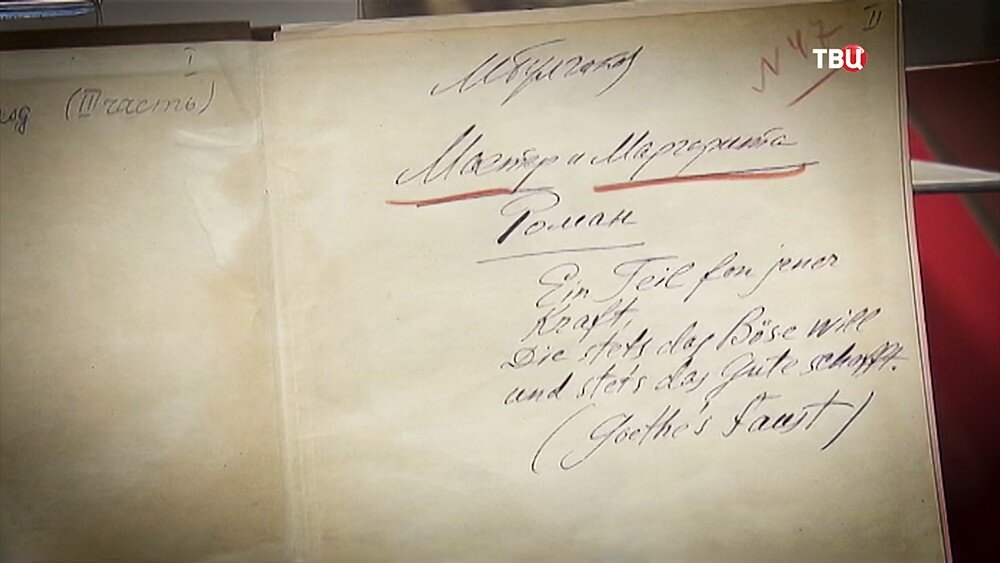 I
(II часть)
II
N 47
ТВЦ
МБулгаков
Мастер и Маргарита
Роман
Ein Teil fon jener
Kraft,
Die stets das Böse will
und stets das Gute schafft.
(Goethe's Faust)